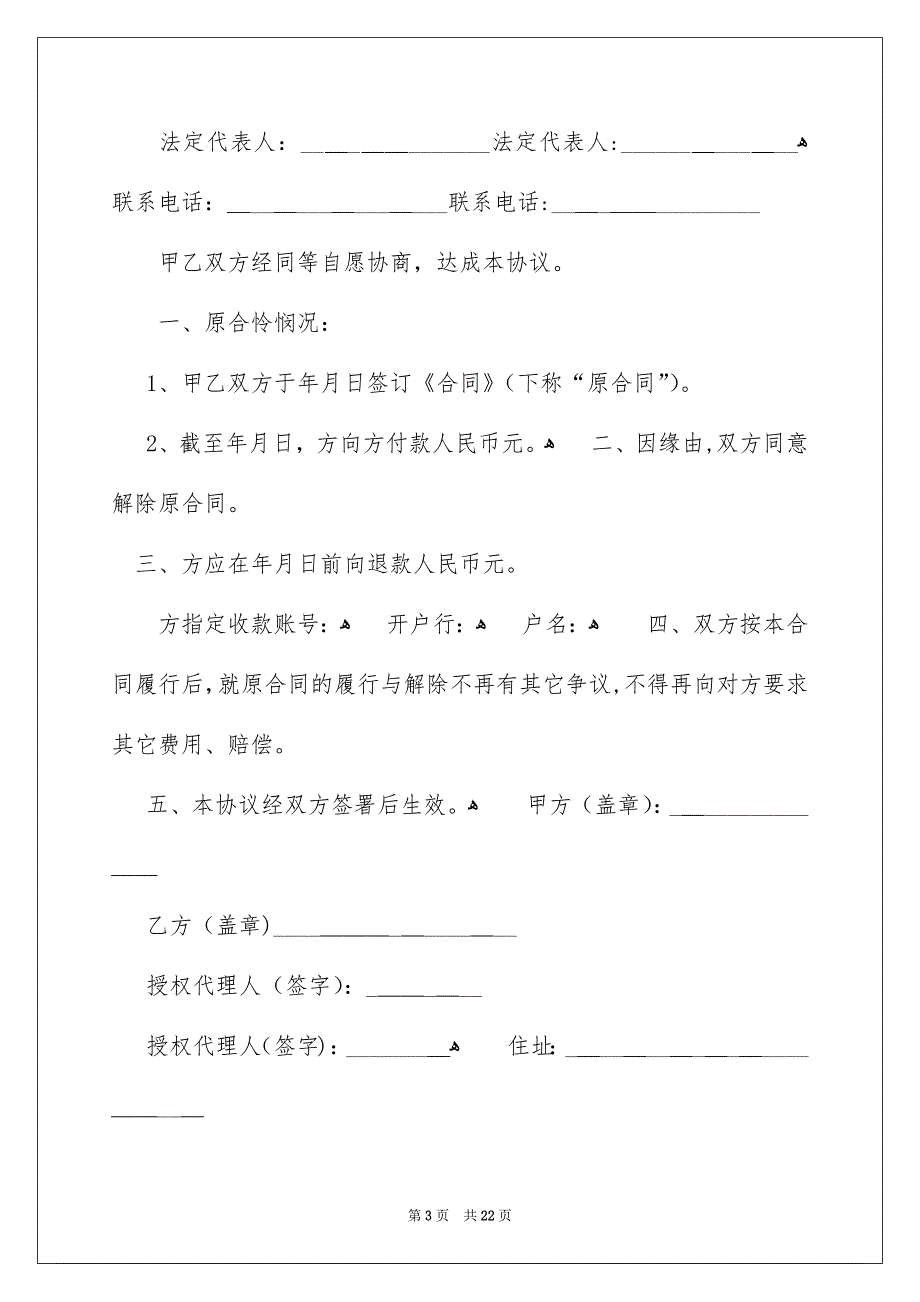 法定代表人：________________法定代表人:_______________ﻫ
联系电话：___________________联系电话:__________________
甲乙双方经同等自愿协商，达成本协议。
一、原合怜悯况：
1、甲乙双方于年月日签订《合同》（下称“原合同”）。
2、截至年月日，方向方付款人民币元。ﻫ 二、因缘由,双方同意
解除原合同。
三、方应在年月日前向退款人民币元。
方指定收款账号：ﻫ 开户行：ﻫ 户名：ﻫ 四、双方按本合
同履行后,就原合同的履行与解除不再有其它争议,不得再向对方要求
其它费用、赔偿。
五、本协议经双方签署后生效。ﻫ 甲方（盖章）：____________
____
乙方（盖章)_____________________
授权代理人（签字）：__________
授权代理人(签字)：_________ﻫ 住址：_____________________
________
第 3 页 共 22 页